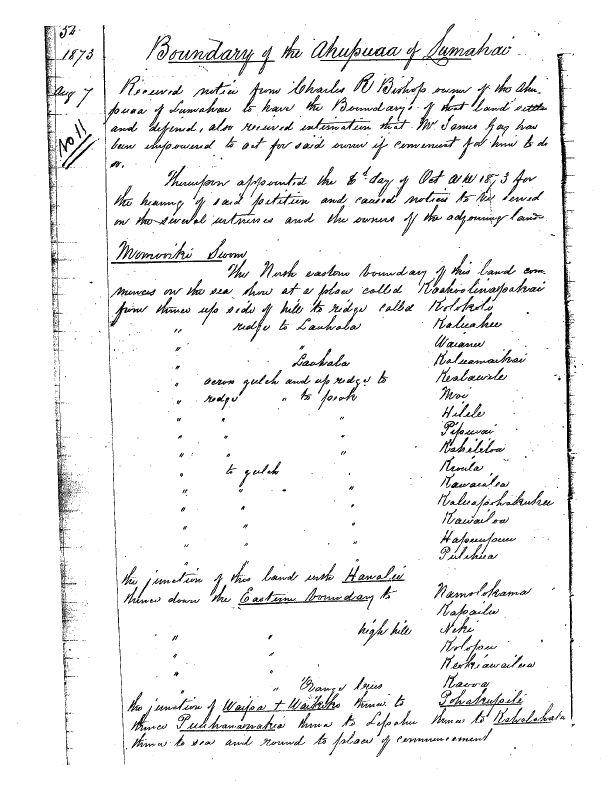 52
1873
Boundary of the Ahupuaa of Lumahai
Aug 7
Received notice from Charles R Bishop owner of the Ahu-
puaa of Lumahai to have the Boundary of that land settled
and defined, also received intimation that Mr James Gay has
No 11
been empowered to act for said owner if convenient for him to do
so.
Thereupon appointed the 6d day of Oct AD 1873 for
the hearing of said petition and caused notices to be served
on the several witnesses and the owners of the adjoining land
Momooiki Sworn
The North eastern boundary of this land com-
mences on the sea shore at a place called
from thence up side of hill to ridge called Kolokolo
" ridge to Lauhala Kaluahee
" " Waianu
" Lauhala Kaluamaikai
" across gulch and up ridge to Kealawele
" ridge " to peak Moi
" " " Hilele
" " " Pipiwai
" " " Kahililoa
" to gulch Keoula
" " " " Kawailea
" " " Kaluapohakuhee
" " " Kawailoa
" " " Hapuupuu
" " " Pulehua
the junction of this land with Hanalei Namolokama
thence down the Eastern boundary to Kapailu
" " high hill Neki
" " Kolopu
" " Keokiawailea
" " Orange trees Kaooa
the junction of Waipa + Waikoko thence to Pohakupili
thence Puuhanawakia thence to Lepahu thence to Kahalahala
thence to sea and round to place of commencement